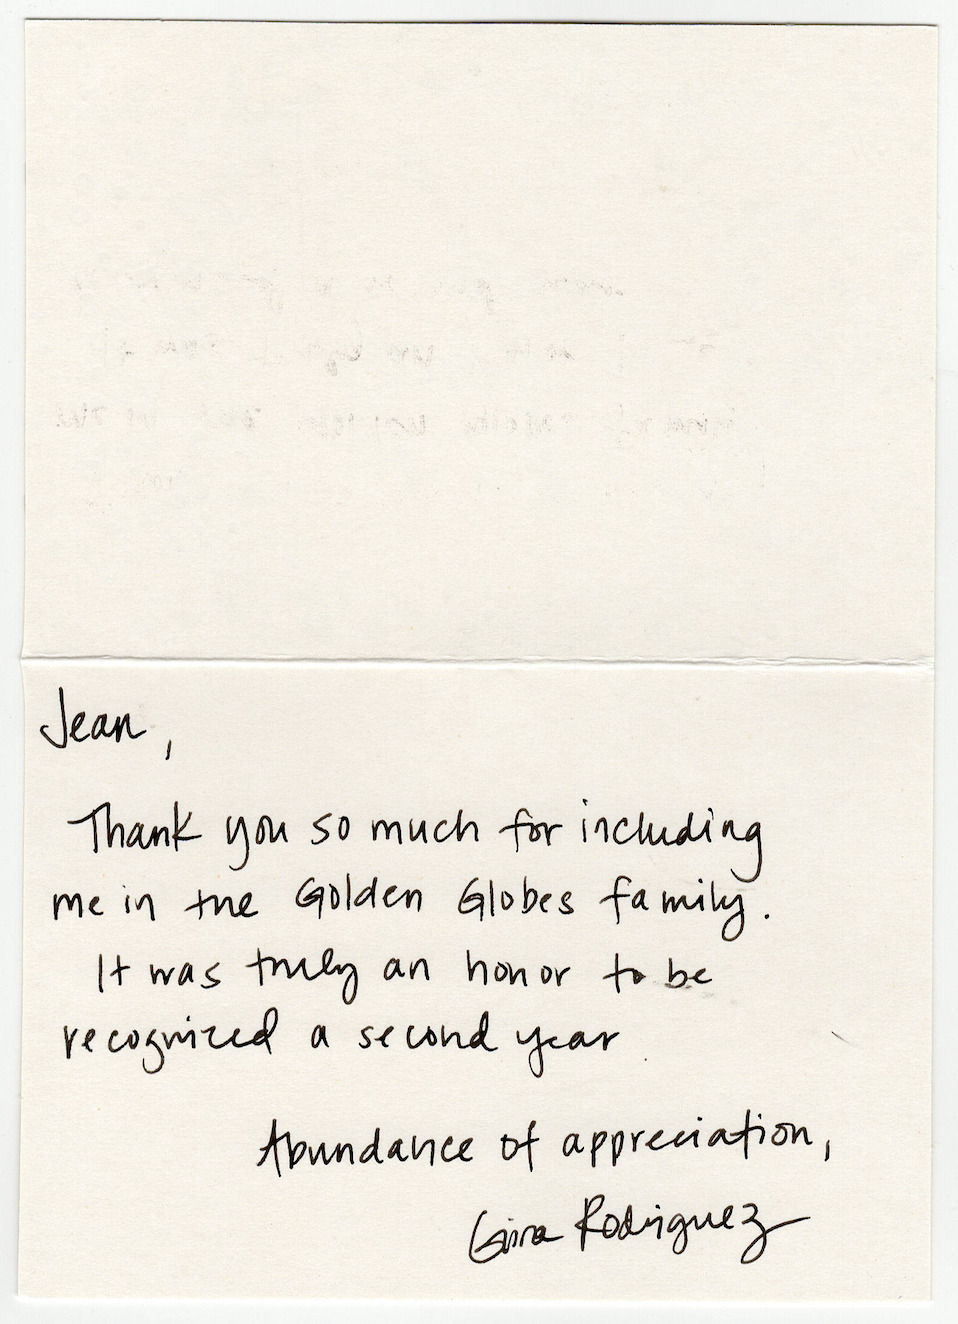 Jean,
Thank you so much for including
me in the Golden Globes family.
It was truly an honor to be
recognized a second year
Abundance of appreciation,
Gina Rodriguez